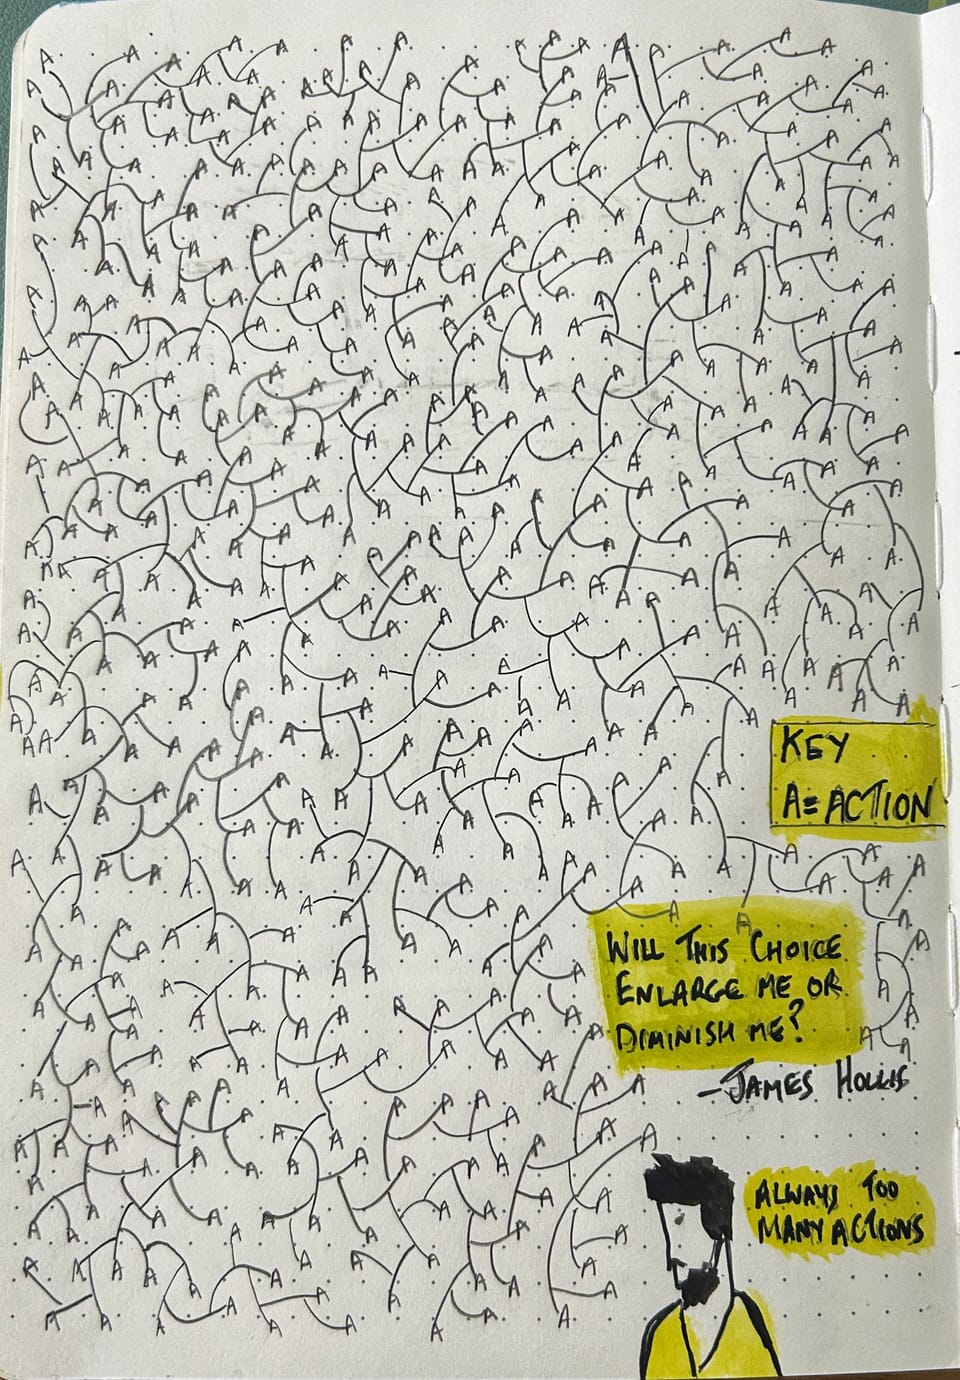 KEY
A= ACTION
WILL THIS CHOICE
ENLARGE ME OR
DIMINISH ME?
-JAMES HOLLIS
ALWAYS TOO
MANY ACTIONS